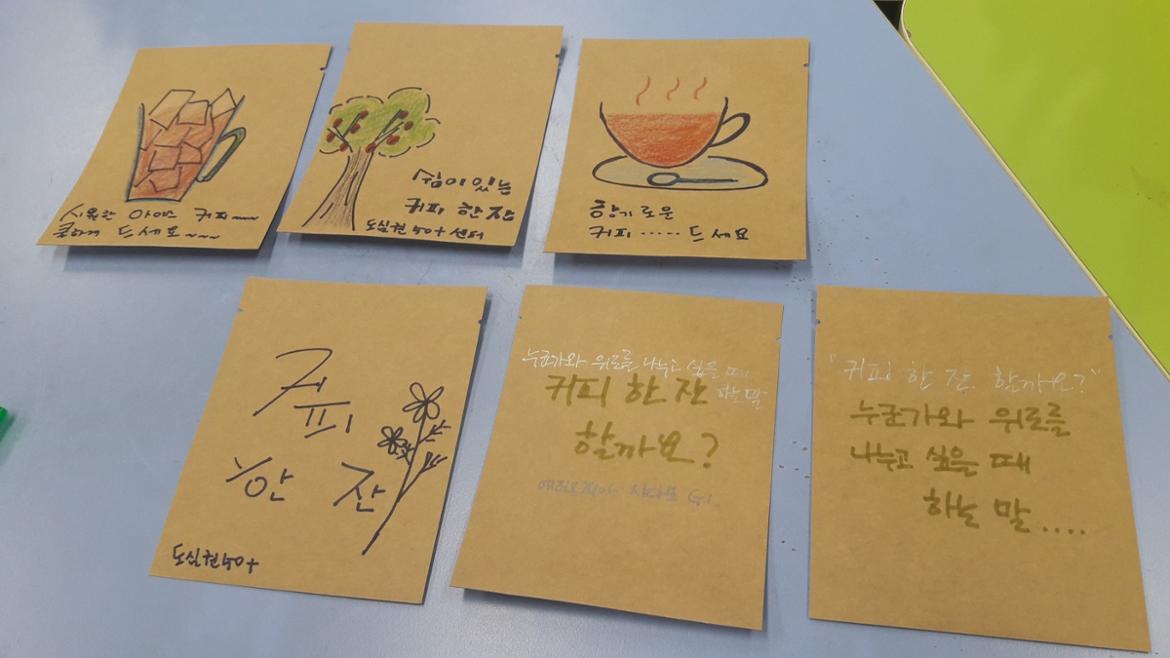 시원한 아이스 커피~~~
쿨하게 드세요~~~
쉼이 있는
커피 한 잔
도심권 50+ 센터
향기로운
커피..... 드세요
커
피
한 잔
도심권 50+
누군가와 위로를 나누고 싶을 때
하는 말
커피 한 잔
할까요?
G1
"커피 한 잔 할까요?"
누군가와 위로를
나누고 싶을 때
하는 말....